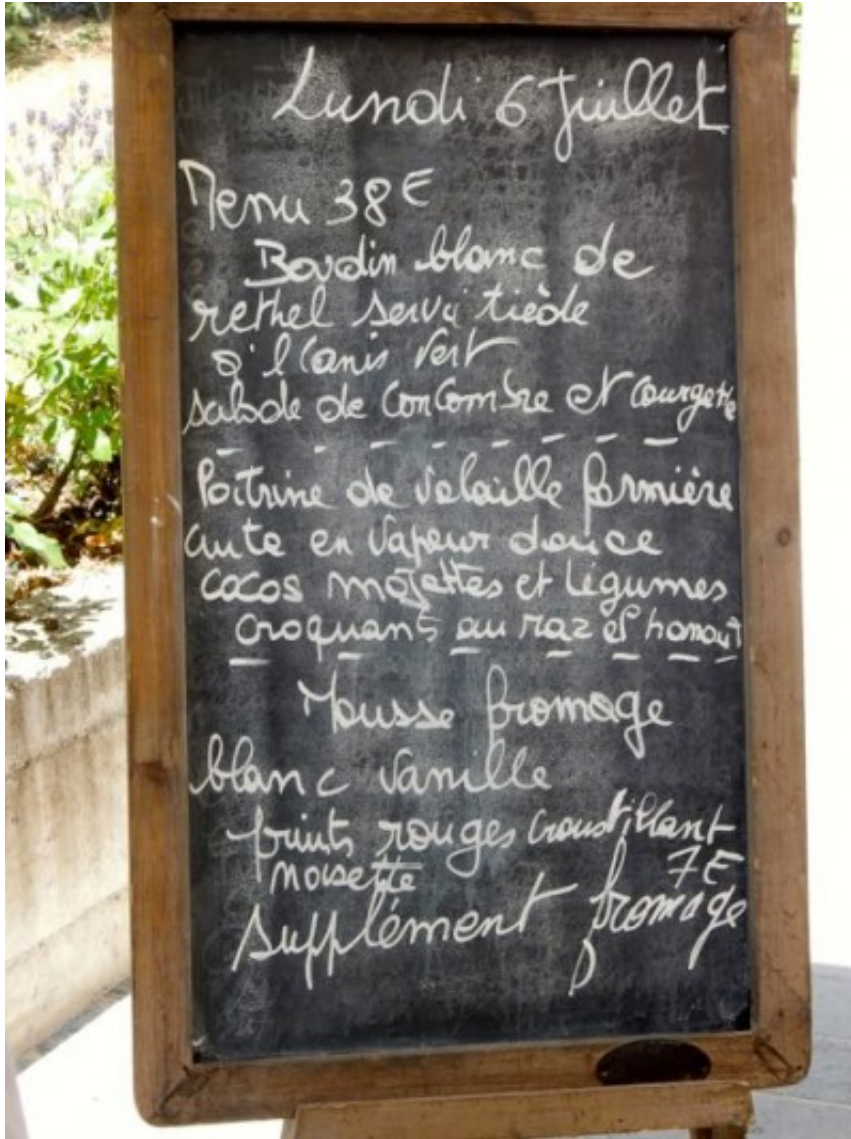 Lundi 6 Juillet
Menu 38€
Boudin blanc de
rethel servi tiède
à l'anis vert
salade de concombre et courgette
Poitrine de volaille fermière
cuite en vapeur douce
cocos mojettes et légumes
croquants au raz el hanout
Mousse fromage
blanc vanille
fruits rouges croustillant
noisette 7€
supplément fromage